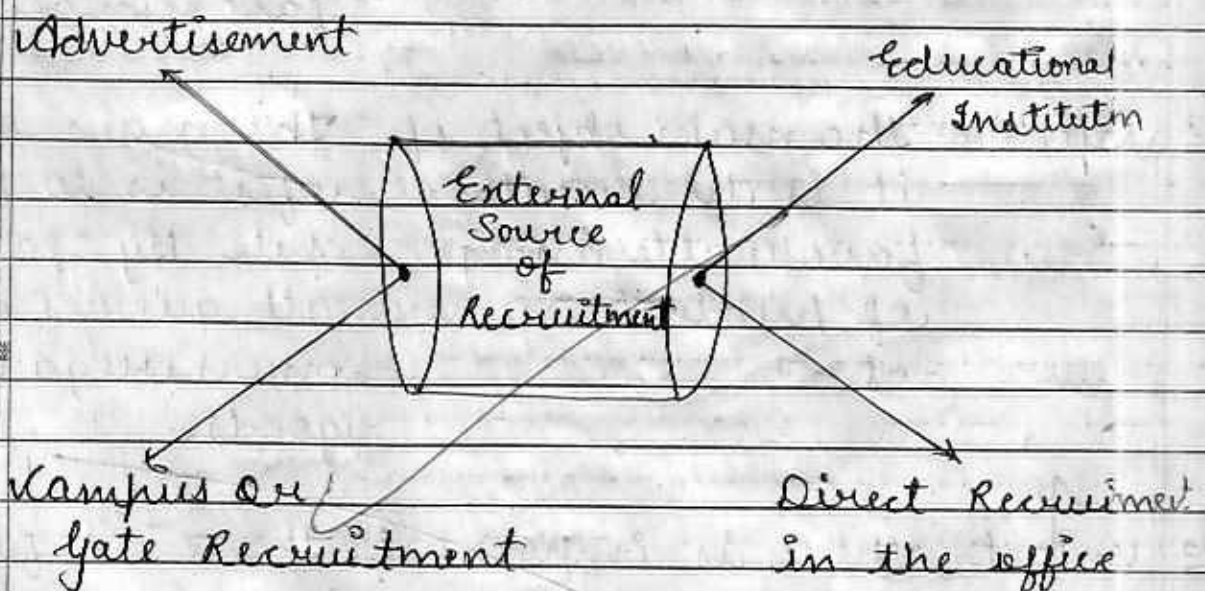 Advertisement
Educational
Institutn
External
Source
of
Recruitment
Campus Or
Gate Recruitment
Direct Recruiment
in the office